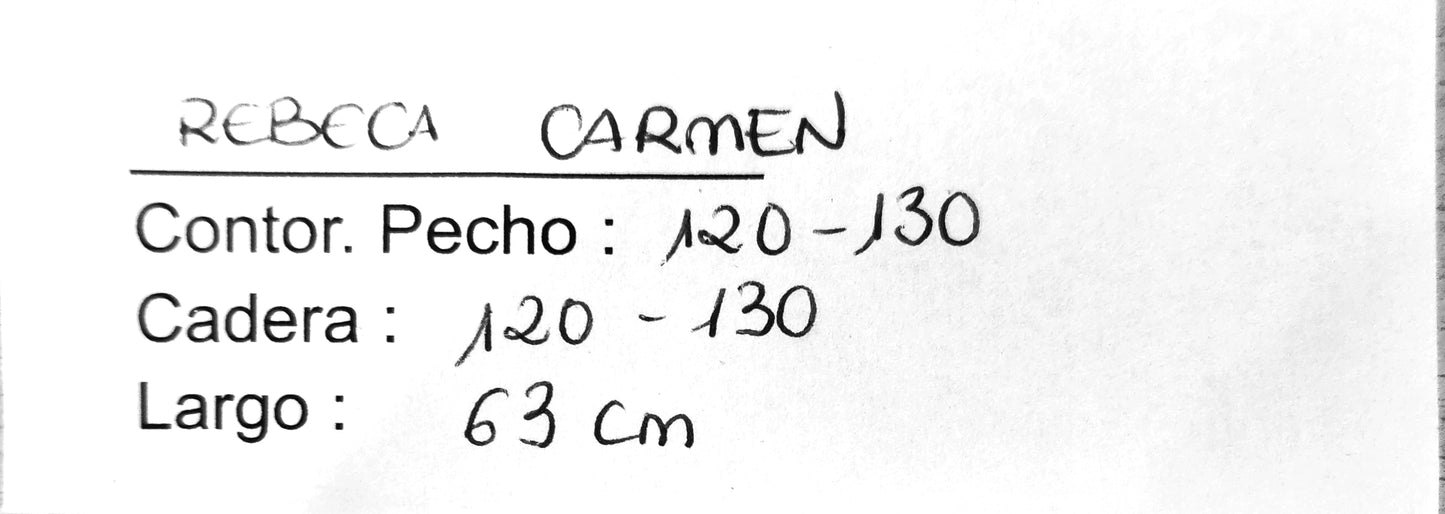 REBECA CARMEN
Contor. Pecho : 120-130
Cadera : 120 - 130
Largo : 63 cm